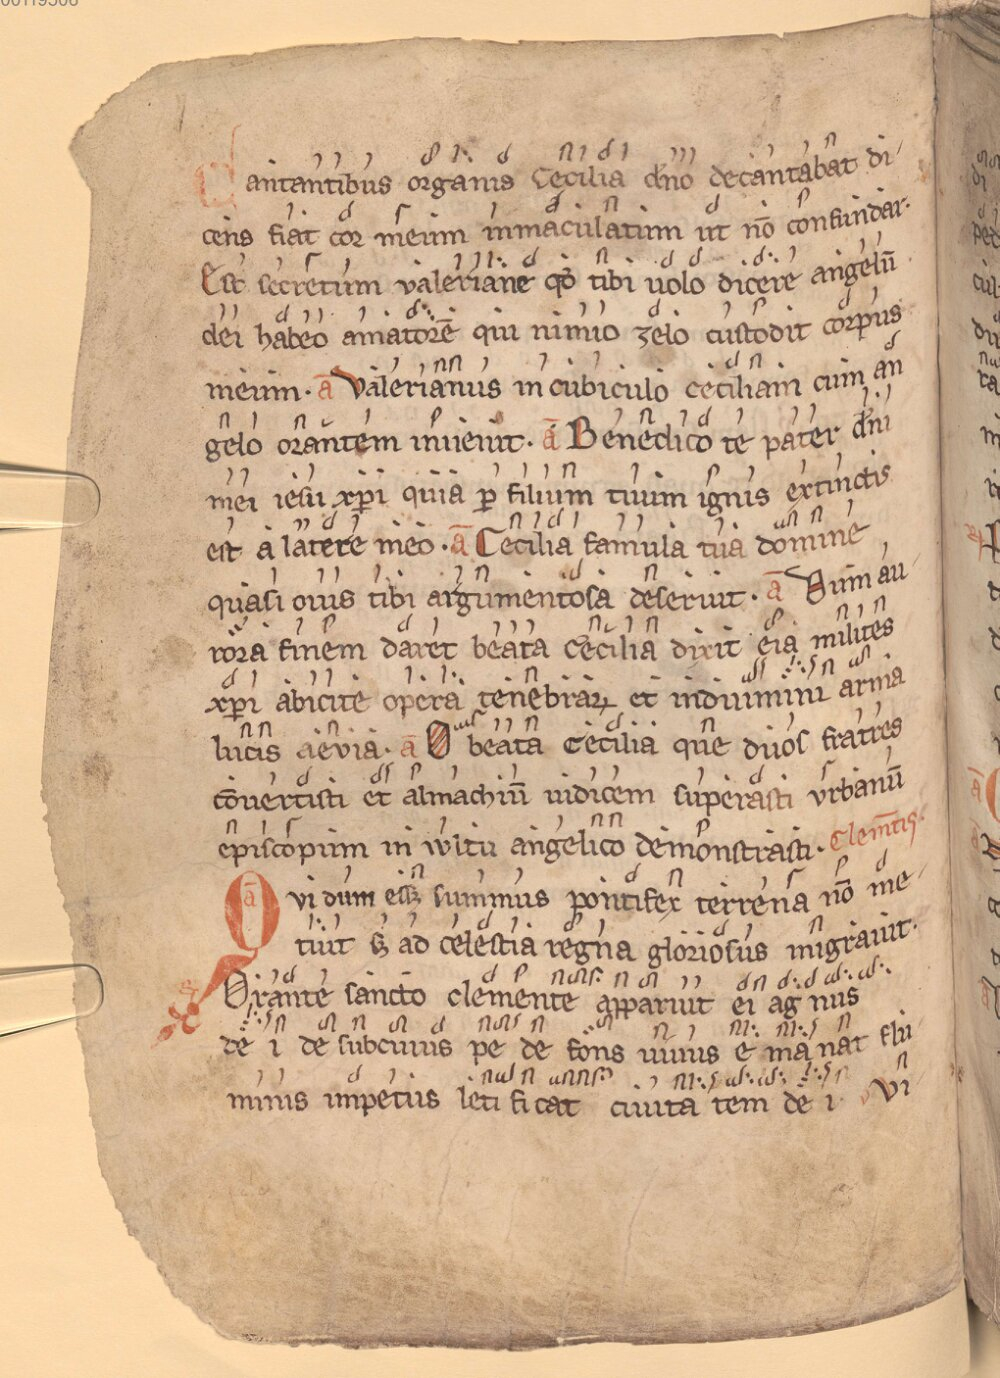 Cantantibus organis Cecilia dn̄o decantabat di
cens fiat cor meum immaculatum ut nō confundar.
Est secretum valeriane qd̄ tibi uolo dicere angelū
dei habeo amatorē qui nimio zelo custodit corpus
meum. ā Valerianus in cubiculo ceciliam cum an
gelo orantem inuenit. ā Benedico te pater dn̄i
mei iesu xp̄i quia p̄ filium tuum ignis extinctis
est a latere meo. ā Cecilia famula tua domine
quasi ouis tibi argumentosa deseruit. ā Dum au
rora finem daret beata cecilia dixit eia milites
xp̄i abicite opera tenebraꝝ et induimini arma
lucis aeuia. ā O beata cecilia que duos fratres
cōuertisti et almachiū iudicem superasti vrbanū
episcopum in uultu angelico demonstrasti. Clem̄tis.
ā Qui dum eēt summus pontifex terrena nō me
ruit s; ad celestia regna gloriosus migrauit.
Orante sancto clemente apparuit ei ag nus
de i de sub cuius pe de fons uiuus e ma nat flu
minis impetus leti fi cat ciuita tem de i. Vi